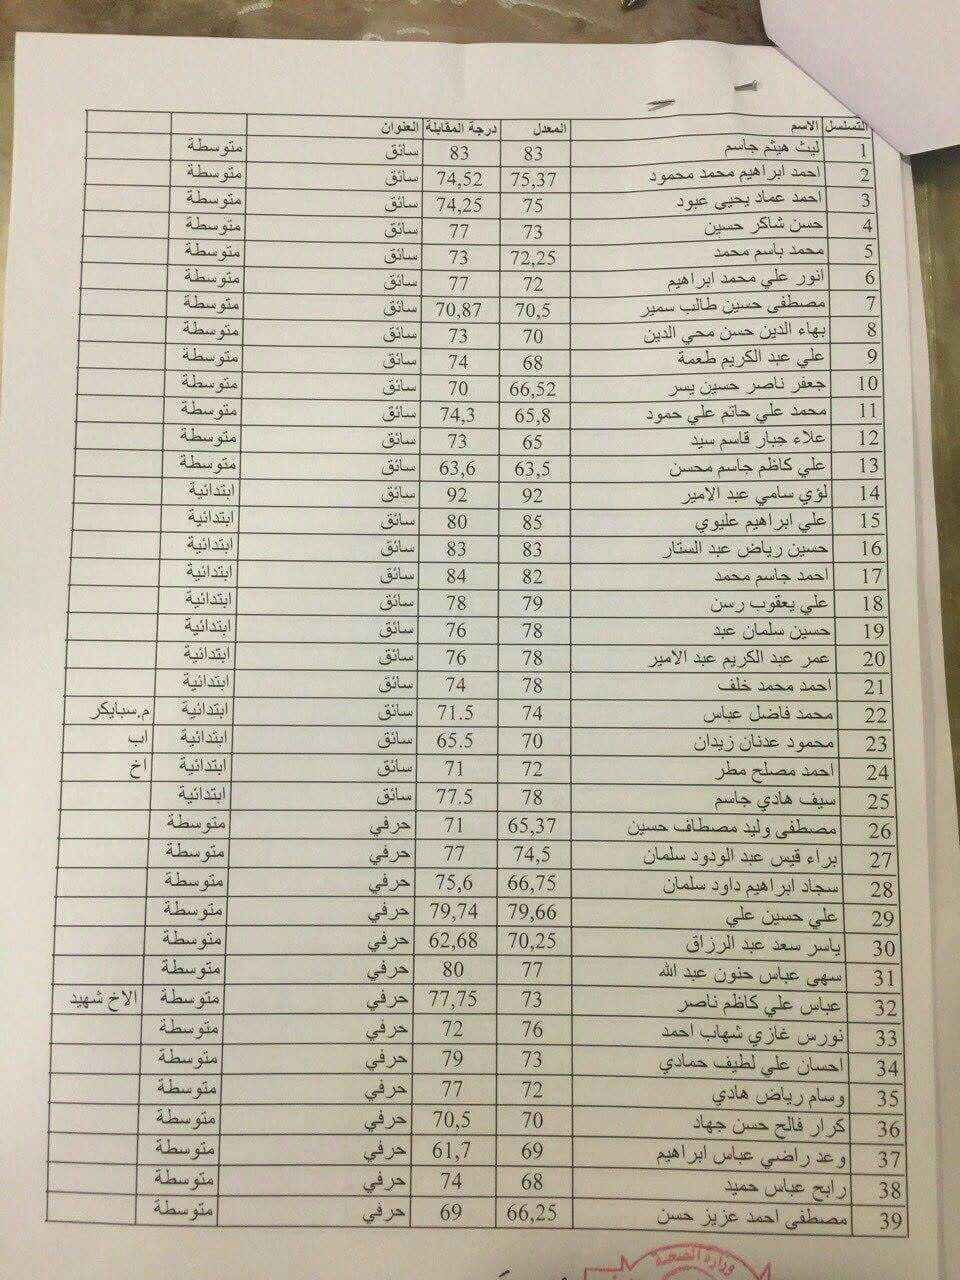 التسلسل الاسم المعدل درجة المقابلة العنوان
1 ليث هيثم جاسم 83 83 سائق متوسطة
2 احمد ابراهيم محمد محمود 75,37 74,52 سائق متوسطة
3 احمد عماد يحيى عبود 75 74,25 سائق متوسطة
4 حسن شاكر حسين 73 77 سائق متوسطة
5 محمد باسم محمد 72,25 73 سائق متوسطة
6 انور علي محمد ابراهيم 72 77 سائق متوسطة
7 مصطفى حسين طالب سمير 70,5 70,87 سائق متوسطة
8 بهاء الدين حسن محي الدين 70 73 سائق متوسطة
9 علي عبد الكريم طعمة 68 74 سائق متوسطة
10 جعفر ناصر حسين يسر 66,52 70 سائق متوسطة
11 محمد علي حاتم علي حمود 65,8 74,3 سائق متوسطة
12 علاء جبار قاسم سيد 65 73 سائق متوسطة
13 علي كاظم جاسم محسن 63,5 63,6 سائق متوسطة
14 لؤي سامي عبد الامير 92 92 سائق ابتدائية
15 علي ابراهيم عليوي 85 80 سائق ابتدائية
16 حسين رياض عبد الستار 83 83 سائق ابتدائية
17 احمد جاسم محمد 82 84 سائق ابتدائية
18 علي يعقوب رسن 79 78 سائق ابتدائية
19 حسين سلمان عبد 78 76 سائق ابتدائية
20 عمر عبد الكريم عبد الامير 78 76 سائق ابتدائية
21 احمد محمد خلف 78 74 سائق ابتدائية
22 محمد فاضل عباس 74 71.5 سائق ابتدائية م.سبايكر
23 محمود عدنان زيدان 70 65.5 سائق ابتدائية اب
24 احمد مصلح مطر 72 71 سائق ابتدائية اخ
25 سيف هادي جاسم 78 77.5 سائق ابتدائية
26 مصطفى وليد مصطاف حسين 65,37 71 حرفي متوسطة
27 براء قيس عبد الودود سلمان 74,5 77 حرفي متوسطة
28 سجاد ابراهيم داود سلمان 66,75 75,6 حرفي متوسطة
29 علي حسين علي 79,66 79,74 حرفي متوسطة
30 ياسر سعد عبد الرزاق 70,25 62,68 حرفي متوسطة
31 سهى عباس حنون عبد الله 77 80 حرفي متوسطة
32 عباس علي كاظم ناصر 73 77,75 حرفي متوسطة الاخ شهيد
33 نورس غازي شهاب احمد 76 72 حرفي متوسطة
34 احسان علي لطيف حمادي 73 79 حرفي متوسطة
35 وسام رياض هادي 72 77 حرفي متوسطة
36 كرار فالح حسن جهاد 70 70,5 حرفي متوسطة
37 وعد راضي عباس ابراهيم 69 61,7 حرفي متوسطة
38 رابح عباس حميد 68 74 حرفي متوسطة
39 مصطفى احمد عزيز حسن 66,25 69 حرفي متوسطة
وزارة الصحة